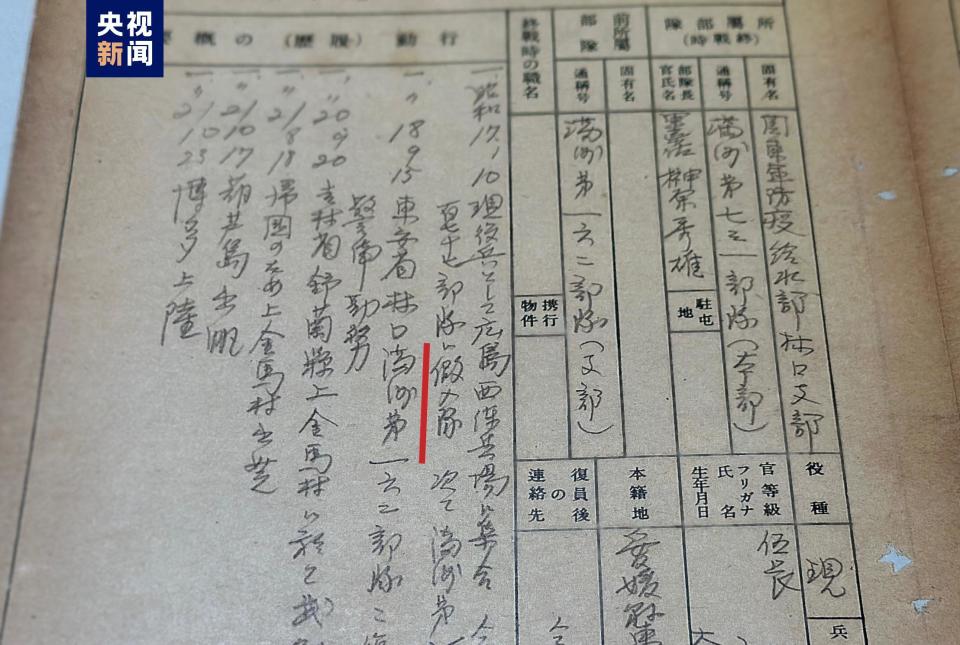 央视
新闻
所屬部隊
(終戰時)
固有名
関東軍防疫給水部林口支部
通稱号
満洲第七三一部隊(本部)
部隊長
官氏名
軍医少佐 榊原秀雄
駐屯地
前所屬部隊
固有名
通稱号
満洲第一六二部隊(支部)
終戰時の職名
携行物件
行動(履歴)の概要
一、昭和17、1、10 現役兵として広島西練兵場ニ集合
部隊ニ仮入隊 次で満洲第
一、〃 18 9 15 東安省林口満洲第一六二部隊ニ
警備勤務
一、〃 20 9 20 吉林省舒蘭縣上金馬村ニ於て武
一、〃 21 8 18 帰国のため上金馬村出発
一、〃 21 10 17 葫芦島出帆
一、〃 21 10 23 博多上陸
役種
現
兵
官等級
伍長
フリガナ
氏名
生年月日
本籍地
愛媛縣
復員後の連絡先